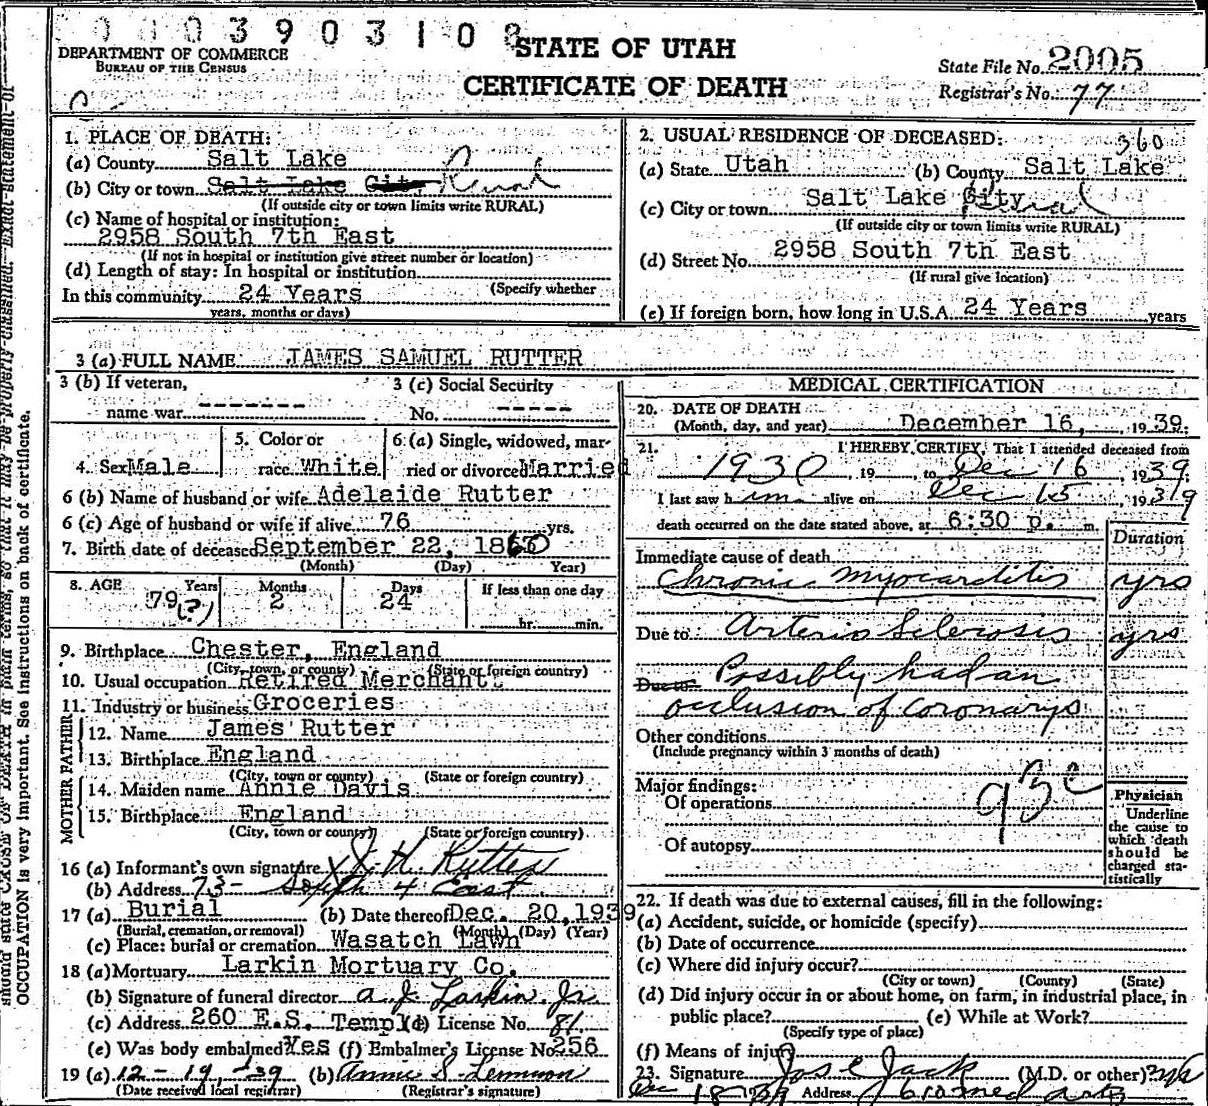 0003903108
STATE OF UTAH
CERTIFICATE OF DEATH
DEPARTMENT OF COMMERCE
BUREAU OF THE CENSUS
State File No. 2005
Registrar's No. 77
1. PLACE OF DEATH:
(a) County Salt Lake
(b) City or town Salt Lake City Rural
(If outside city or town limits write RURAL)
(c) Name of hospital or institution:
2958 South 7th East
(If not in hospital or institution give street number or location)
(d) Length of stay: In hospital or institution
(Specify whether
In this community 24 Years
years, months or days)
2. USUAL RESIDENCE OF DECEASED:
360
(a) State Utah (b) County Salt Lake
(c) City or town Salt Lake City Rural
(If outside city or town limits write RURAL)
(d) Street No. 2958 South 7th East
(If rural give location)
(e) If foreign born, how long in U.S.A. 24 Years years
3 (a) FULL NAME JAMES SAMUEL RUTTER
3 (b) If veteran,
name war -------
3 (c) Social Security
No. -----
4. Sex Male
5. Color or
race White
6 (a) Single, widowed, mar-
ried or divorced Married
6 (b) Name of husband or wife Adelaide Rutter
6 (c) Age of husband or wife if alive 76 yrs.
7. Birth date of deceased September 22, 1860
(Month) (Day) Year)
8. AGE Years Months Days If less than one day
79 (?) 2 24 hr. min.
9. Birthplace Chester, England
(City, town, or county) (State or foreign country)
10. Usual occupation Retired Merchant.
11. Industry or business Groceries
FATHER
12. Name James Rutter
13. Birthplace England
(City, town or county) (State or foreign country)
MOTHER
14. Maiden name Annie Davis
15. Birthplace England
(City, town or county) (State or foreign country)
16 (a) Informant's own signature X J. H. Rutter
(b) Address 73- South 4 East
17 (a) Burial (b) Date thereof Dec. 20, 1939
(Burial, cremation, or removal) (Month) (Day) (Year)
(c) Place: burial or cremation Wasatch Lawn
18 (a) Mortuary Larkin Mortuary Co.
(b) Signature of funeral director A. J. Larkin Jr.
(c) Address 260 E.S. Temple (d) License No. 81
(e) Was body embalmed? Yes (f) Embalmer's License No 256
19 (a) 12-19-39 (b) Annie S.
(Date received local registrar) (Registrar's signature)
MEDICAL CERTIFICATION
20. DATE OF DEATH
(Month, day, and year) December 16, 1939.
21. I HEREBY CERTIFY, That I attended deceased from
1930, 19 , to Dec 16, 1939
I last saw him alive on Dec 15, 1939
death occurred on the date stated above, at 6:30 p. m.
Duration
Immediate cause of death
Chronic Myocarditis yrs
Due to Arterio Sclerosis yrs
Due to Possibly had an
occlusion of coronarys
Other conditions
(Include pregnancy within 3 months of death)
Major findings:
Of operations
93c
Of autopsy
Physician
Underline
the cause to
which death
should be
charged sta-
tistically
22. If death was due to external causes, fill in the following:
(a) Accident, suicide, or homicide (specify)
(b) Date of occurrence
(c) Where did injury occur?
(City or town) (County) (State)
(d) Did injury occur in or about home, on farm, in industrial place, in
public place? (e) While at Work?
(Specify type of place)
(f) Means of injury
23. Signature Jos E Jack (M.D. or other)
Dec 18 39 Address Med Arts
should state CAUSE OF DEATH in plain terms, so that it may be properly classified. Exact statement of
OCCUPATION is very important. See instructions on back of certificate.